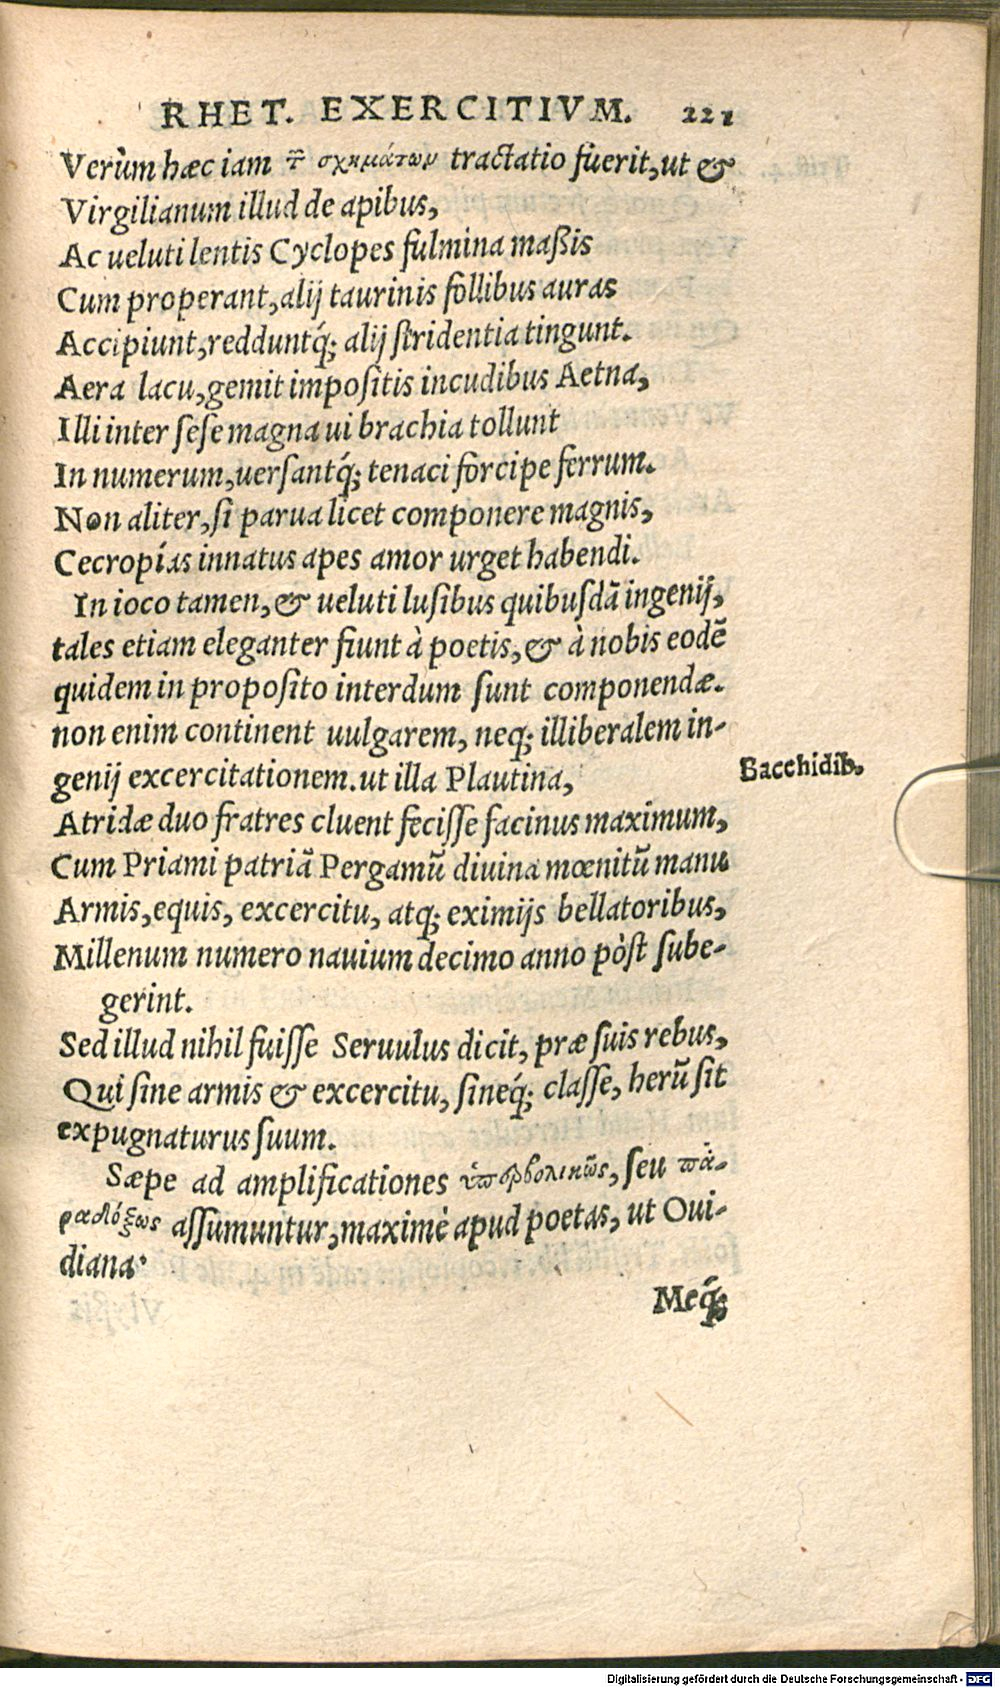 RHET. EXERCITIVM. 221
Verùm hæc iam τ͂ σχημάτωμ tractatio fuerit, ut &
Virgilianum illud de apibus,
Ac ueluti lentis Cyclopes fulmina maßis
Cum properant, alij taurinis follibus auras
Accipiunt, redduntq́; alij ſtridentia tingunt.
Aera lacu, gemit impoſitis incudibus Aetna,
Illi inter ſeſe magna ui brachia tollunt
In numerum, uerſantq́; tenaci forcipe ferrum.
Non aliter, ſi parua licet componere magnis,
Cecropías innatus apes amor urget habendi.
In ioco tamen, & ueluti luſibus quibuſdã ingenij,
tales etiam eleganter fiunt à poetis, & à nobis eodẽ
quidem in propoſito interdum ſunt componendæ.
non enim continent uulgarem, neq; illiberalem in-
genij excercitationem. ut illa Plautina,
Bacchidib.
Atridæ duo fratres cluent feciſſe facinus maximum,
Cum Priami patriã Pergamũ diuina mœnitũ manu
Armis, equis, excercitu, atq; eximijs bellatoribus,
Millenum numero nauium decimo anno pòſt ſube-
gerint.
Sed illud nihil fuiſſe Seruulus dicit, præ ſuis rebus,
Qui ſine armis & excercitu, ſineq́; claſſe, herũ ſit
expugnaturus ſuum.
Sæpe ad amplificationes ὑπερβολικῶς, ſeu πα-
ραδόξως aſſumuntur, maximè apud poetas, ut Oui-
diana.
Meq́;
Digitalisierung gefördert durch die Deutsche Forschungsgemeinschaft - DFG